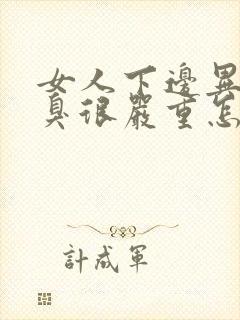 女人下邊異
臭很嚴重怎
計成軍